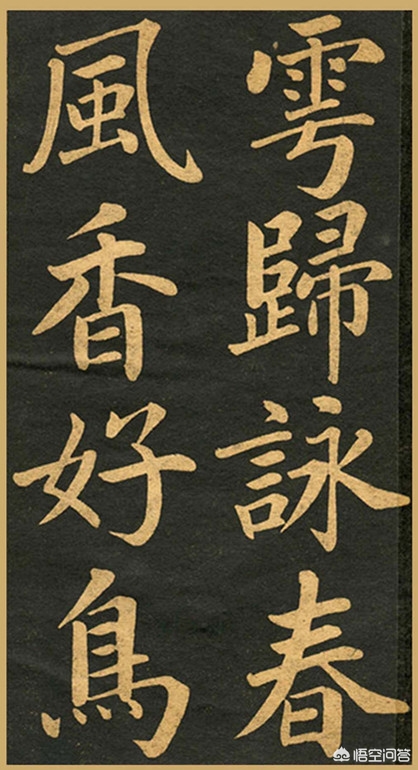 雩歸詠春
風香好鳥
悟空问答